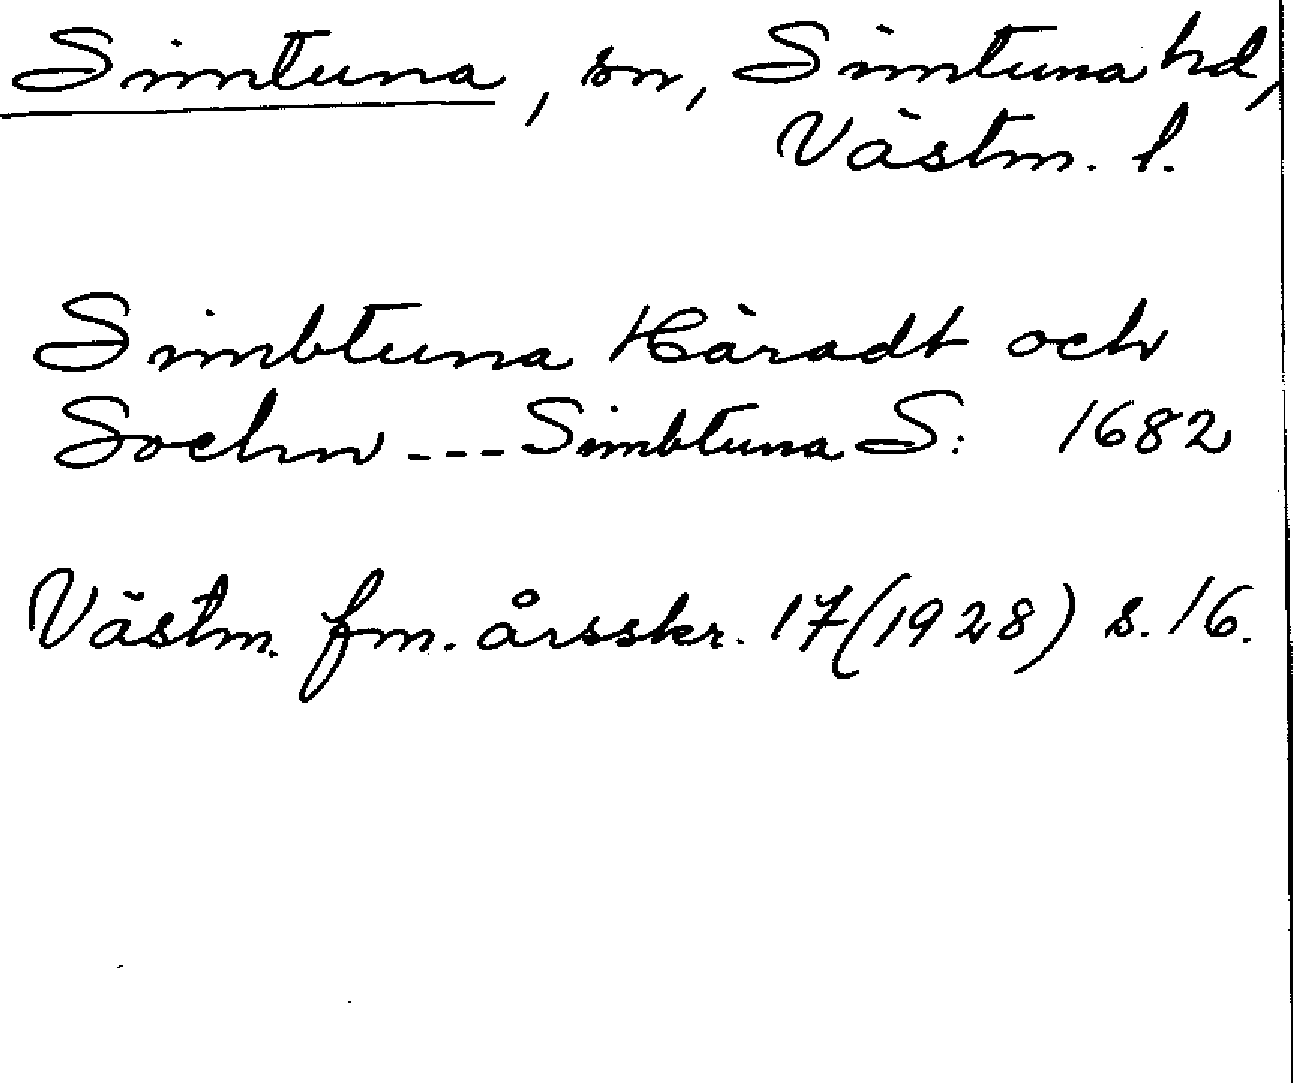 Simtuna, sn, Simtuna hd,
Västm. l.
Simbtuna Häradt och
Sochn --- Simbtuna S: 1682
Västm. fm. årsskr. 17 (1928) s. 16.